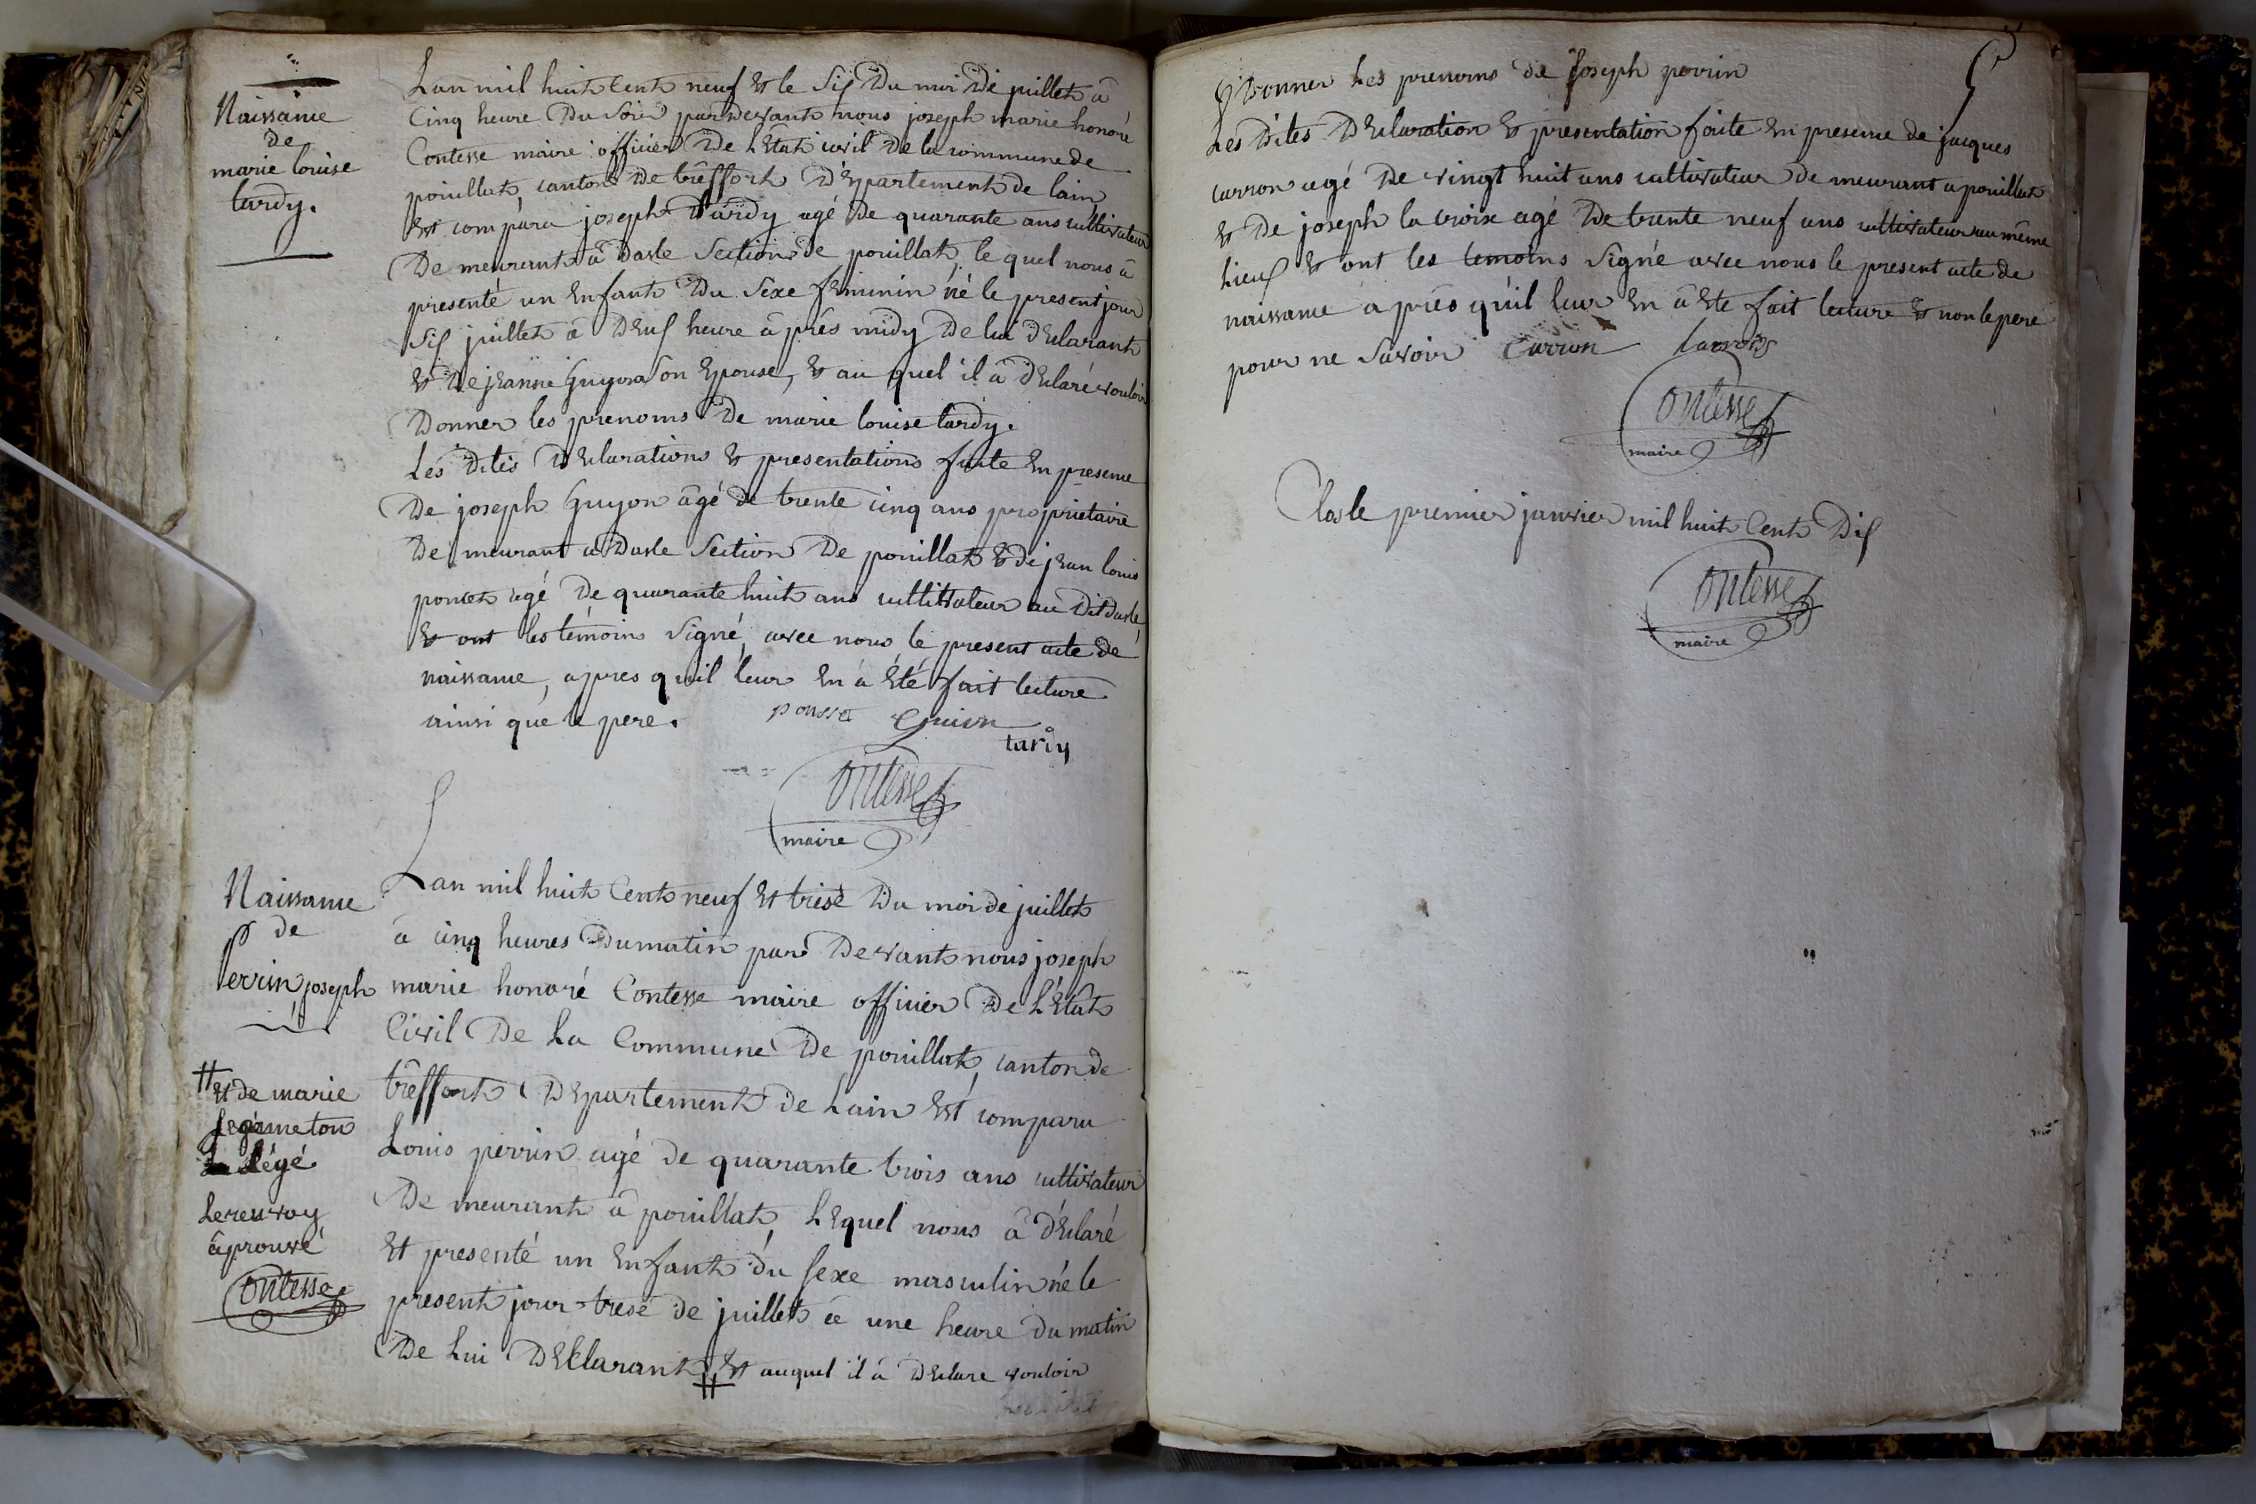 Naissance
de
marie louise
tardy.
Lan mil huit Cent neuf et le Six Du moi De juillet â
Cinq heure Du Soir pardevant nous joseph marie honoré
Contesse maire officier De LEtat civil De la commune de
pouillat canton De trêffort Département de lain
Est compâru joseph Tardy agé De quarante ans cultivateur
De meurant â Dasle Section De pouillat, le quel nous â
presenté un Enfant Du Sexe feminin né le present jour
Six juillet â DEux heure âprés midy De lui dEclarant
et De jeanne Guyon Son Epouse, et au quel il â dEclaré vouloir
Donner les prenoms De marie louise tardy.
Les Dites DEclarations et presentations faite En presence
De joseph Guyon âgé de trente cinq ans proprietaire
De meurant a Dasle Section De pouillat et de jean louis
poncet agé De quarante huit ans cultivateur au Dit Dasle
et ont les témoins Signé avec nous le present acte de
naissance, apres quil leur En à Eté fait lecture
ainsi que le pere. pousset Guion
tardy
Contesse
maire
Naissance
de
Perrin joseph
Lan mil huit Cent neuf Et trèse Du moi de juillet
â cinq heures Dumatin par Devant nous joseph
marie honoré Contesse maire officier De LEtat
Civil De La Commune De pouillat, canton de
trêffort Département de Lain Est comparu
Louis perrin agé de quarante trois ans cultivateur
De meurant â pouillat, LEquel nous â dÉclaré
Et presenté un Enfant du Sexe masculin né le
present jour trese de juillet â une heure du matin
De Lui DEClarant et auquel il â DEclare vouloir
et de marie
Légé
Le renvoy
âprouvé
Contesse
Donner Les prenoms de Joseph perrin
Les Dites DEclaration et presentation faite En presence de jacques
carron agé De vingt huit ans cultivateur De meurant a pouillat
et De joseph la croix agé De trente neuf ans cultivateur au même
Lieux et ont les temoins Signé avec nous le present acte de
naissance aprés qu'il leur En â Ete fait lecture et non le pere
pour ne Savoir Carron lacroix
Contesse
maire
Clos le premier janvier mil huit Cent Dix
Contesse
maire